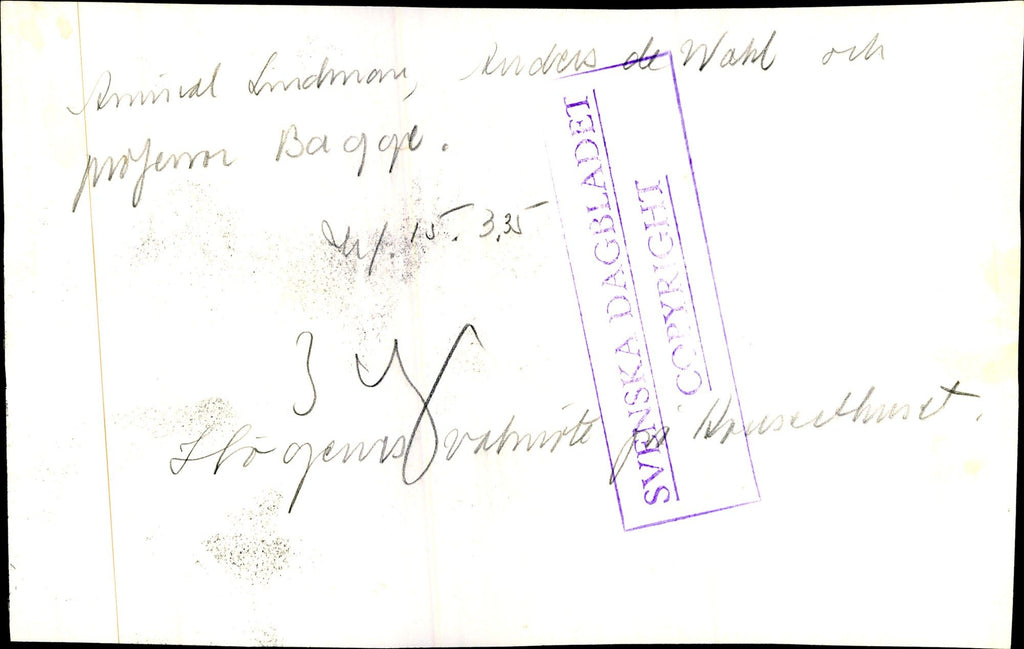 Amiral Lindman, Anders de Wahl och
professor Bagge.
Inf. 15. 3.35
Högerns valmöte på Konserthuset.
SVENSKA DAGBLADET
COPYRIGHT